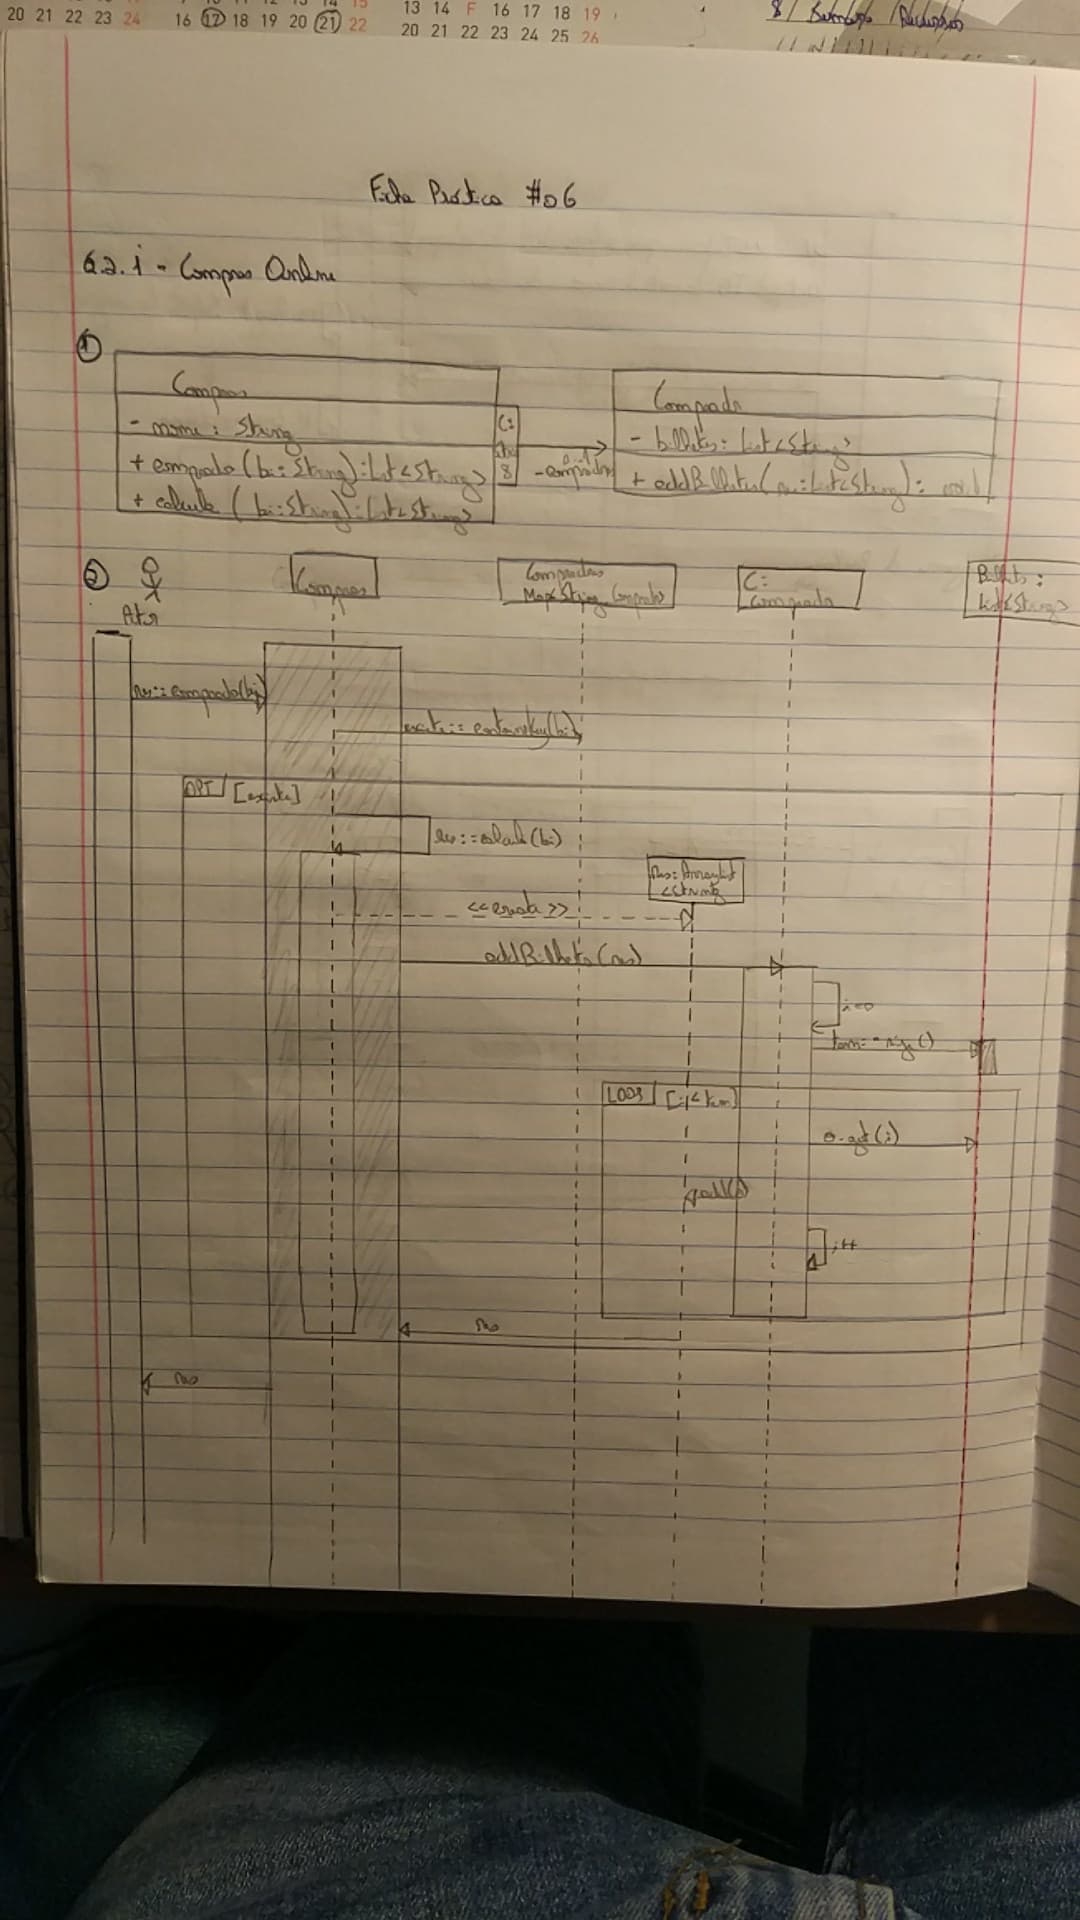 13 14 F 16 17 18 19
20 21 22 23 24 16 17 18 19 20 21 22
20 21 22 23 24 25 26
Ficha Prática #06
6.2.1 - Compras Online
1
Compras
- nome: String
+ comprado (bi: String): List<String>
+ calcula (bi: String): List<String>
Comprado
- bilhetes: List<String>
+ addBilhetes( res: List<String>):
2
Ator
Compras
Map<String, Comprado>
C:
Comprado
Bilhetes:
List<String>
res:= comprado(bi)
existe:= containsKey(bi)
OPT [existe]
res:=calcula(bi)
res: ArrayList
<String>
<<create>>
addBilhetes(res)
i=0
tam:= size()
LOOP [i<tam]
get(i)
add(s)
i++
res
res